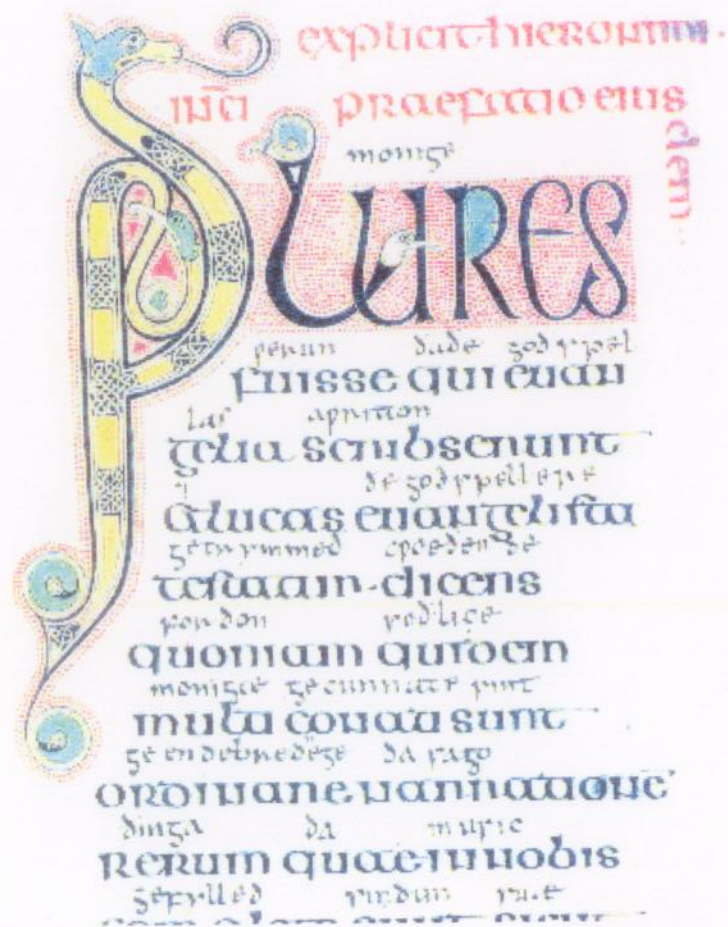 explicit hieronimi
praefatio eius
dem
monige
PLURES
werun ðaðe godspel
fuisse qui euan
las awritton
gelia scribserunt
⁊ ðe godspellere
et lucas euangelista
getrymmeð cuoeðende
testatur dicens
forðon soðlice
quoniam quidem
monigæ gecunnate sint
multi conati sunt
ge endebrednege ða sago
ordinare narrationē
ðinga ða in usic
rerum quae in nobis
gefylled sindun suæ